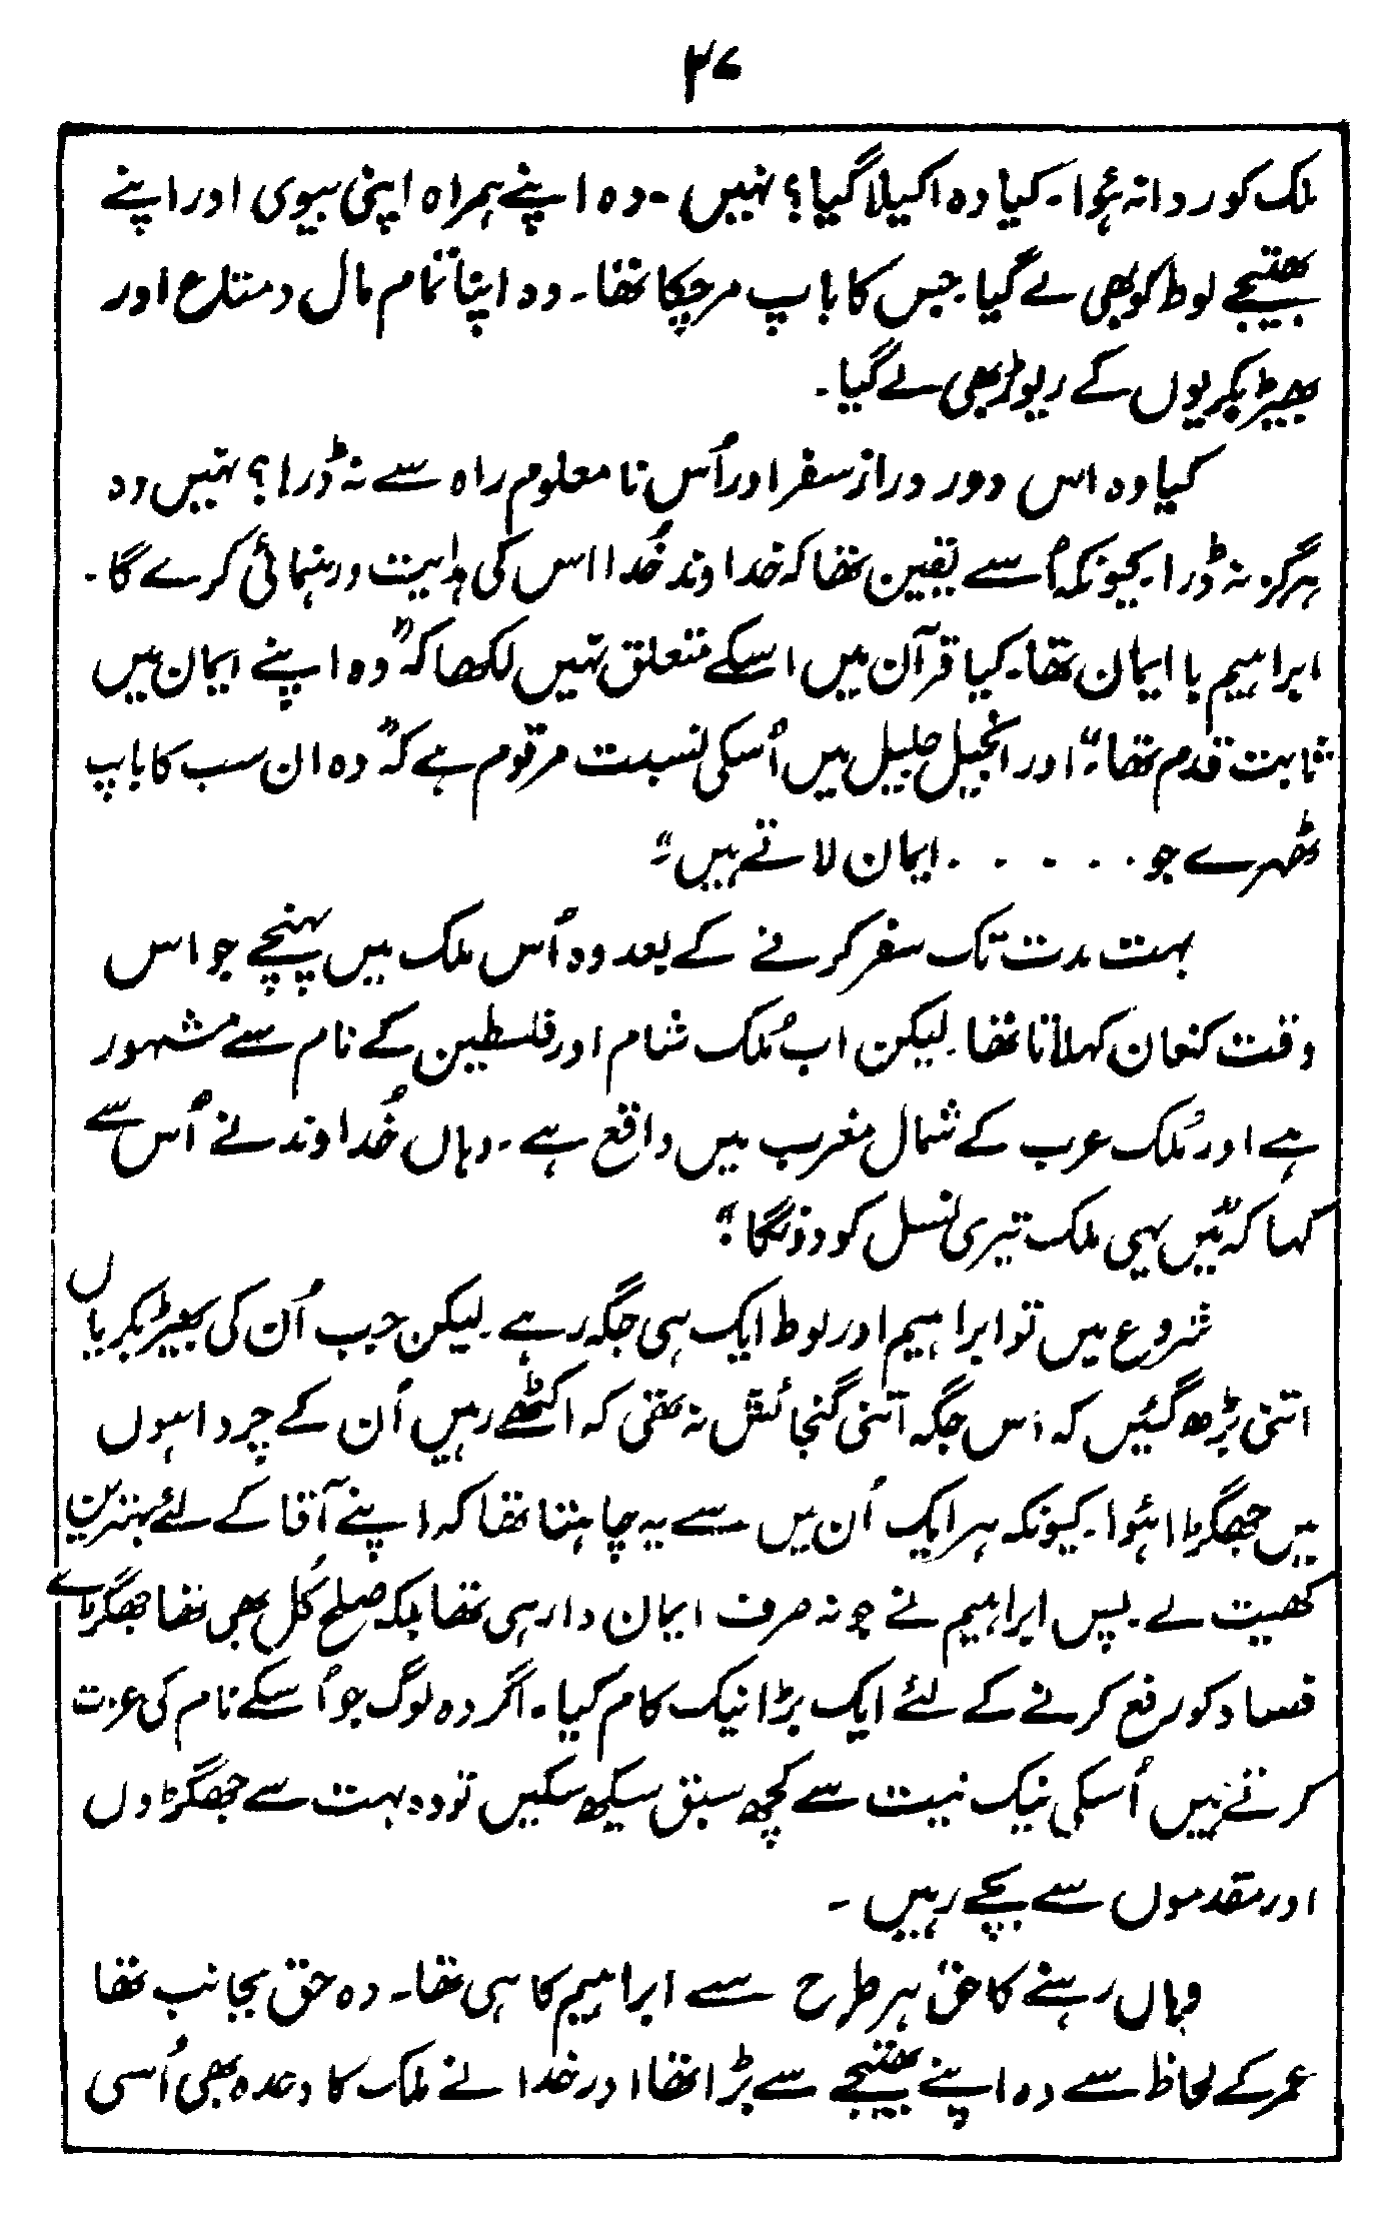 ۳۷
ملک کو روانہ ہُوا۔ کیا وہ اکیلا گیا؟ نہیں۔ وہ اپنے ہمراہ اپنی بیوی اور اپنے
بھتیجے لوط کو بھی لے گیا۔ جس کا باپ مرچکا تھا۔ وہ اپنا تمام مال و متاع اور
بھیڑ بکریوں کے ریوڑ بھی لے گیا۔
کیا وہ اس دور دراز سفر اور اُس نا معلوم راہ سے نہ ڈرا؟ نہیں وہ
ہرگز نہ ڈرا۔ کیونکہ اُسے یقین تھا کہ خداوند خُدا اس کی ہدایت و رہنمائی کرے گا۔
ابراہیم با ایمان تھا۔ کیا قرآن میں اسکے متعلق نہیں لکھا کہ ”وہ اپنے ایمان میں
ثابت قدم تھا۔“ اور انجیل جلیل میں اُسکی نسبت مرقوم ہے کہ ”وہ ان سب کا باپ
ٹھہرے جو . . . . . ایمان لاتے ہیں۔“
بہت مدت تک سفر کرنے کے بعد وہ اُس ملک میں پہنچے جو اس
وقت کنعان کہلاتا تھا۔ لیکن اب مُلک شام اور فلسطین کے نام سے مشہور
ہے اور مُلک عرب کے شمال مغرب میں واقع ہے۔ وہاں خُداوند نے اُس سے
کہا کہ ”میں یہی ملک تیری نسل کو دونگا۔“
شروع میں تو ابراہیم اور لوط ایک ہی جگہ رہے۔ لیکن جب اُن کی بھیڑ بکریاں
اتنی بڑھ گئیں کہ اُس جگہ اتنی گنجائش نہ تھی کہ اکٹھے رہیں اُن کے چرواہوں
میں جھگڑا ہُوا۔ کیونکہ ہر ایک اُن میں سے یہ چاہتا تھا کہ اپنے آقا کے لئے بہترین
کھیت لے۔ پس ابراہیم نے جو نہ صرف ایمان دار ہی تھا بلکہ صلح کُل بھی تھا جھگڑے
فساد کو رفع کرنے کے لئے ایک بڑا نیک کام کیا۔ اگر وہ لوگ جو اُسکے نام کی عزت
کرتے ہیں اُسکی نیک نیت سے کچھ سبق سیکھ سکیں تو وہ بہت سے جھگڑوں
اور مقدموں سے بچے رہیں۔
وہاں رہنے کا حق ہر طرح سے ابراہیم کا ہی تھا۔ وہ حق بجانب تھا
عمر کے لحاظ سے وہ اپنے بھتیجے سے بڑا تھا اور خدا نے ملک کا وعدہ بھی اُسی